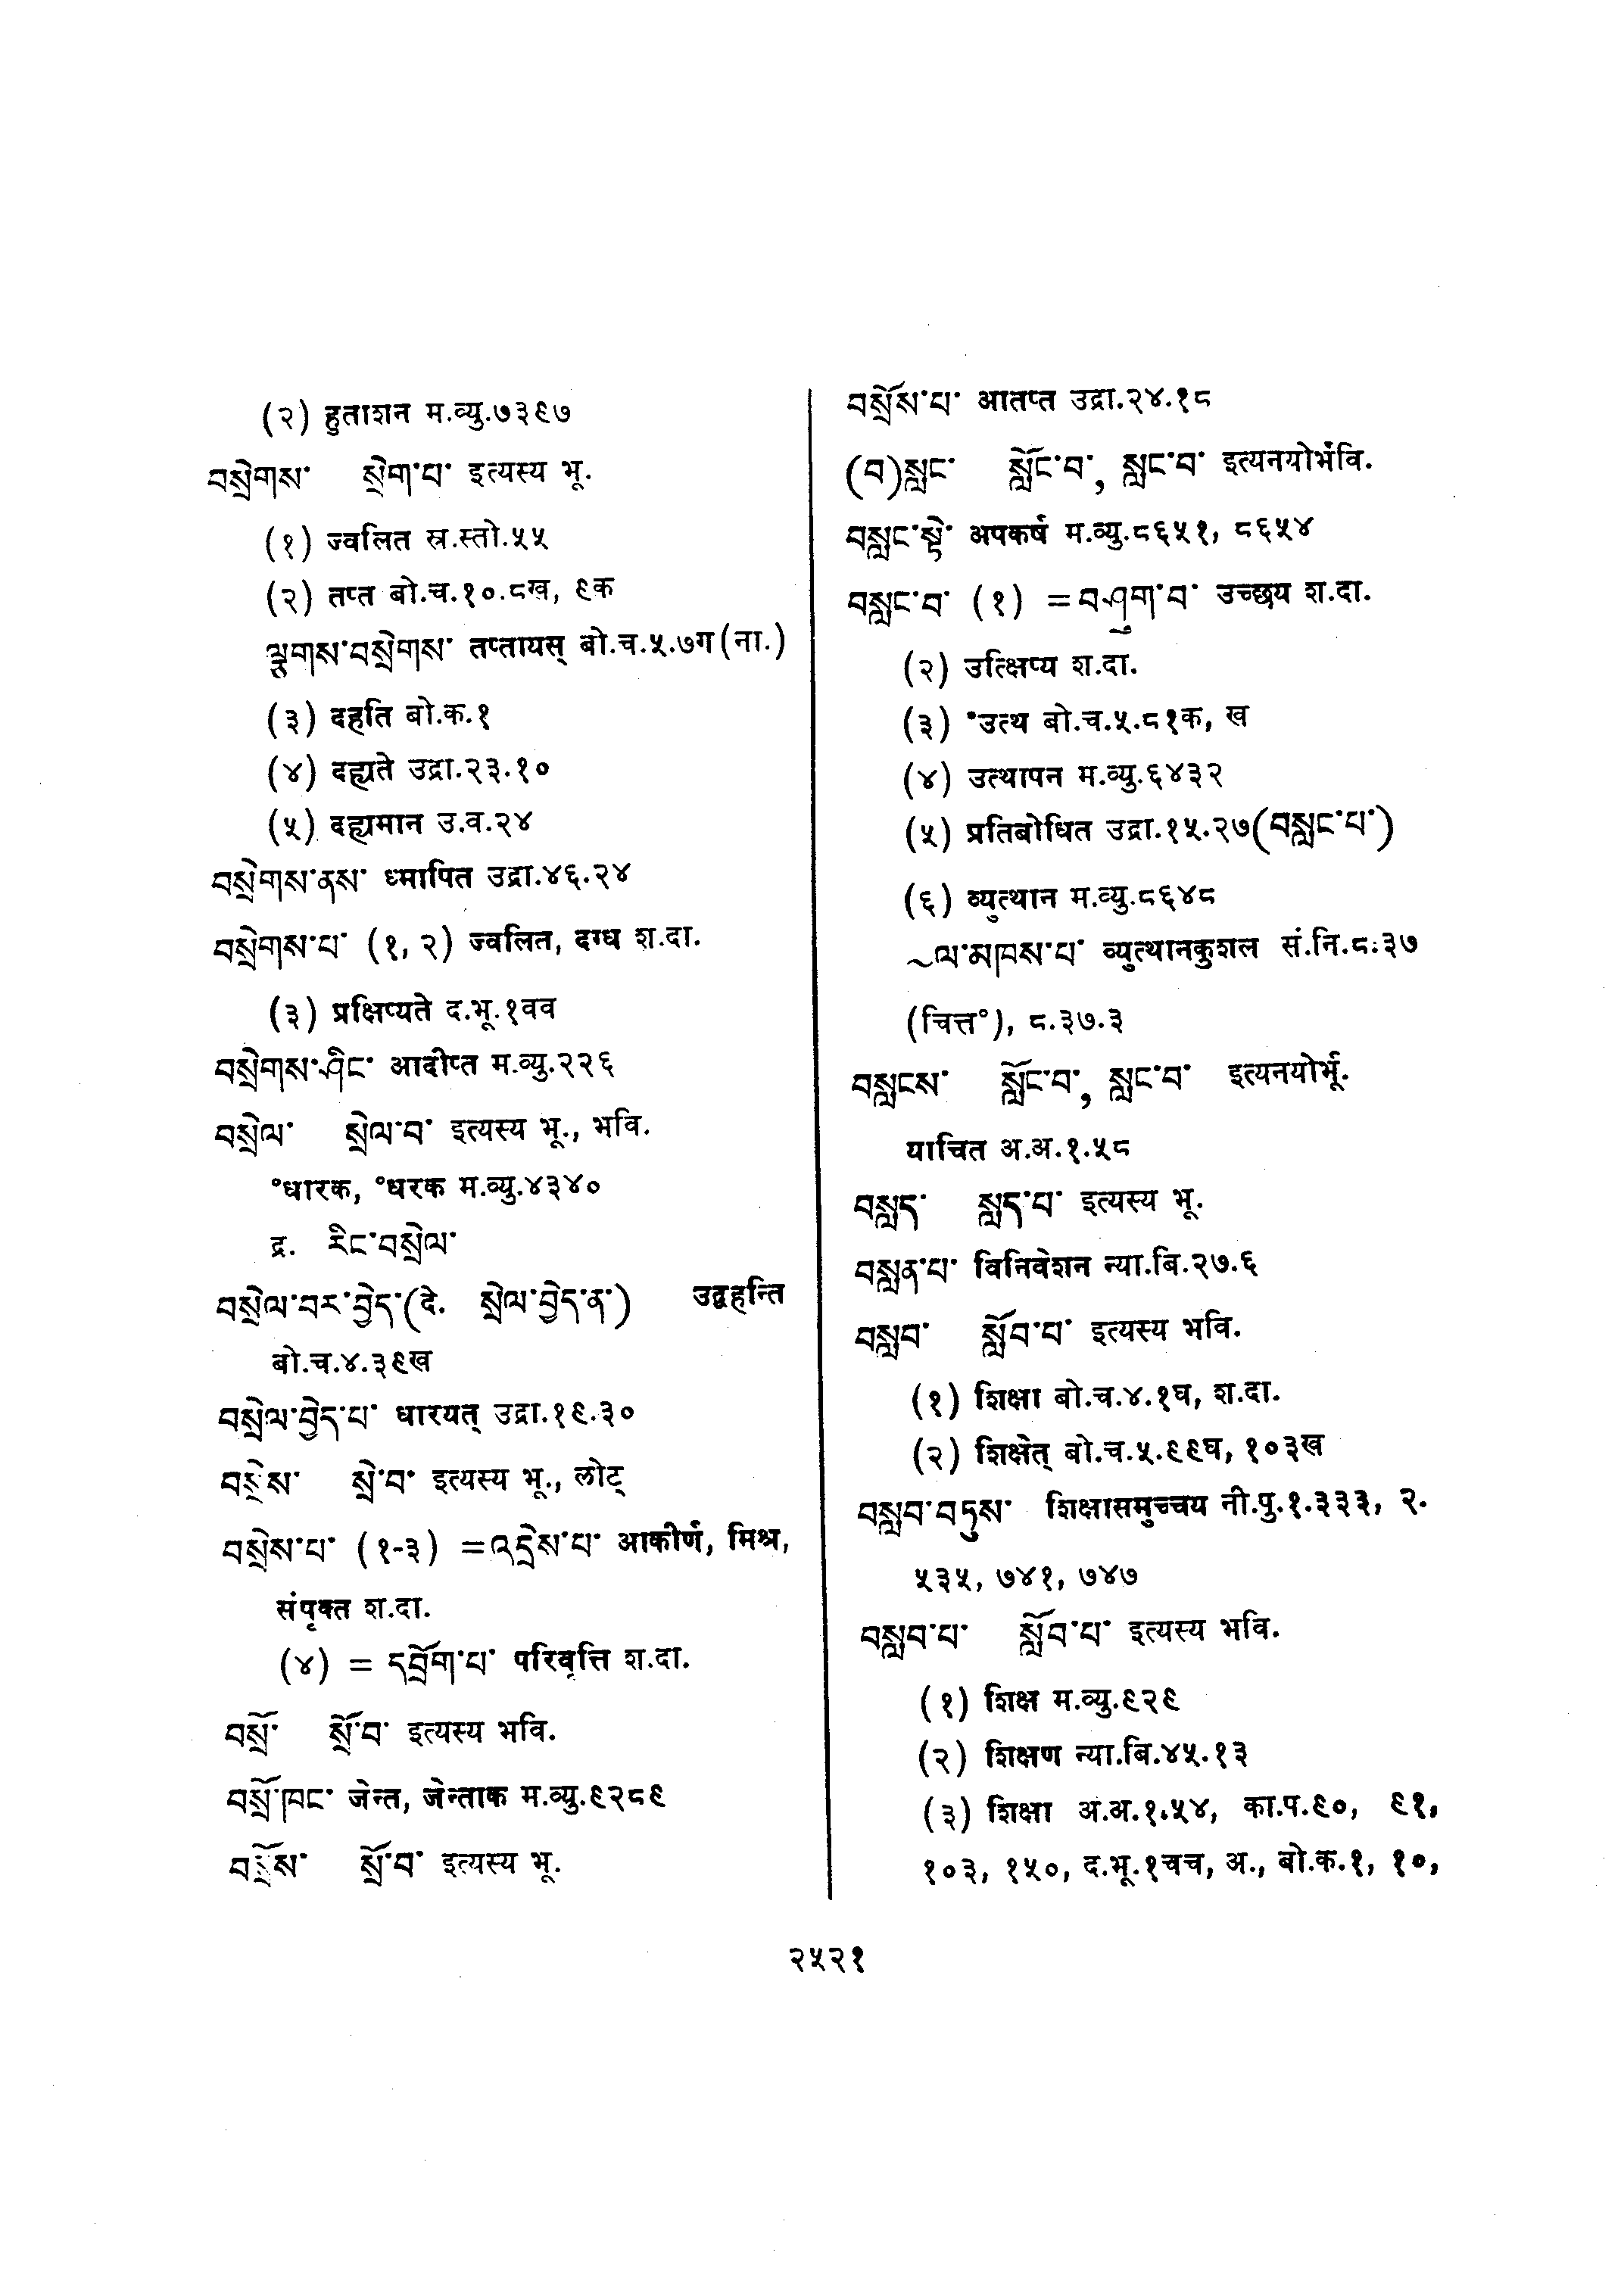 (२) हुताशन म.व्यु.७३९७
བསྲེགས་ སྲེག་པ་ इत्यस्य भू.
(१) ज्वलित स्र.स्तो.५५
(२) तप्त बो.च.१०.८ख, ९क
ལྕགས་བསྲེགས་ तप्तायस् बो.च.५.७ग(ना.)
(३) दहति बो.क.१
(४) दह्यते उद्रा.२३.१०
(५) दह्यमान उ.व.२४
བསྲེགས་ནས་ ध्मापित उद्रा.४६.२४
བསྲེགས་པ་ (१, २) ज्वलित, दग्ध श.दा.
(३) प्रक्षिप्यते द.भू.१वव
བསྲེགས་ཤིང་ आदीप्त म.व्यु.२२६
བསྲེལ་ སྲེལ་བ་ इत्यस्य भू., भवि.
°धारक, °धरक म.व्यु.४३४०
द्र. རིང་བསྲེལ་
བསྲེལ་བར་བྱེད་(दे. སྲེལ་བྱེད་ན་) उद्वहन्ति
बो.च.४.३९ख
བསྲེལ་བྱེད་པ་ धारयत् उद्रा.१९.३०
བསྲེས་ སྲེ་བ་ इत्यस्य भू., लोट्
བསྲེས་པ་ (१-३) =འདྲེས་པ་ आकीर्ण, मिश्र,
संपृक्त श.दा.
(४) = དབྲོག་པ་ परिवृत्ति श.दा.
བསྲོ་ སྲོ་བ་ इत्यस्य भवि.
བསྲོ་ཁང་ जेन्त, जेन्ताक म.व्यु.९२८९
བསྲོས་ སྲོ་བ་ इत्यस्य भू.
བསྲོས་པ་ आतप्त उद्रा.२४.१८
(བ)སླང་ སློང་བ་, སླང་བ་ इत्यनयोर्भवि.
བསླང་སྟེ་ अपकर्ष म.व्यु.८६५१, ८६५४
བསླང་བ་ (१) =བཤུག་བ་ उच्छय श.दा.
(२) उत्क्षिप्य श.दा.
(३) °उत्थ बो.च.५.८१क, ख
(४) उत्थापन म.व्यु.६४३२
(५) प्रतिबोधित उद्रा.१५.२७(བསླང་པ་)
(६) व्युत्थान म.व्यु.८६४८
~ལ་མཁས་པ་ व्युत्थानकुशल सं.नि.८.३७
(चित्त°), ८.३७.३
བསླངས་ སློང་བ་, སླང་བ་ इत्यनयोर्भू.
याचित अ.अ.१.५८
བསླད་ སླད་པ་ इत्यस्य भू.
བསླན་པ་ विनिवेशन न्या.बि.२७.६
བསླབ་ སློབ་པ་ इत्यस्य भवि.
(१) शिक्षा बो.च.४.१घ, श.दा.
(२) शिक्षेत् बो.च.५.९९घ, १०३ख
བསླབ་བཏུས་ शिक्षासमुच्चय नी.पु.१.३३३, २.
५३५, ७४१, ७४७
བསླབ་པ་ སློབ་པ་ इत्यस्य भवि.
(१) शिक्ष म.व्यु.९२९
(२) शिक्षण न्या.बि.४५.१३
(३) शिक्षा अ.अ.१.५४, का.प.९०, ९१,
१०३, १५०, द.भू.१चच, अ., बो.क.१, १०,
२५२१